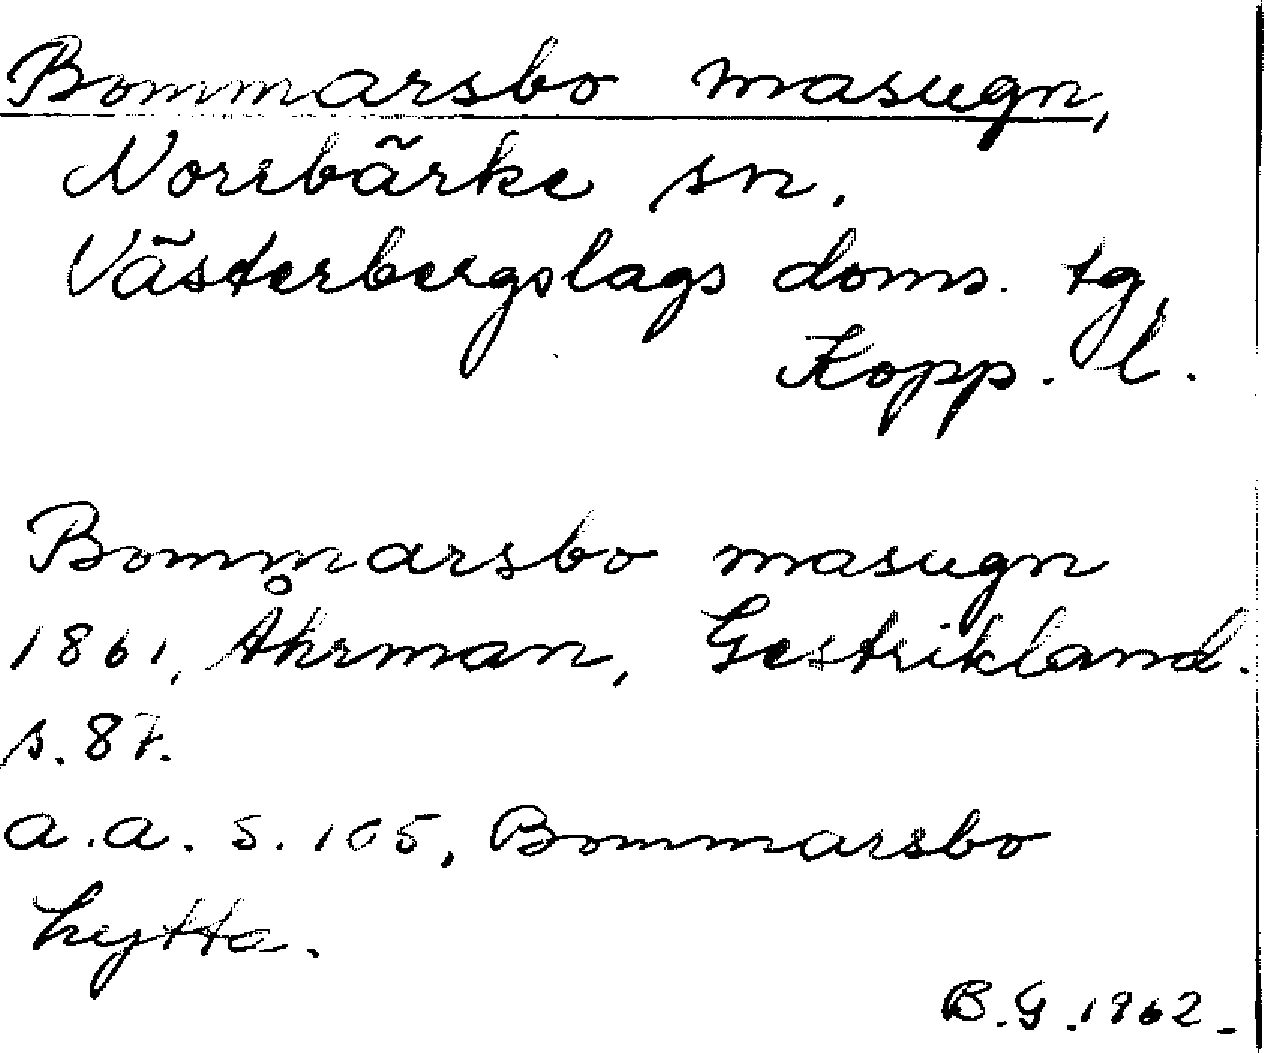 Bommarsbo masugn,
Norrbärke sn.
Västerbergslags doms. tg,
Kopp. l.
Bommarsbo masugn
1861, Åhrman, Gestrikland.
s. 87.
a.a. s. 105, Bommarsbo
hytta.
B.G. 1962.